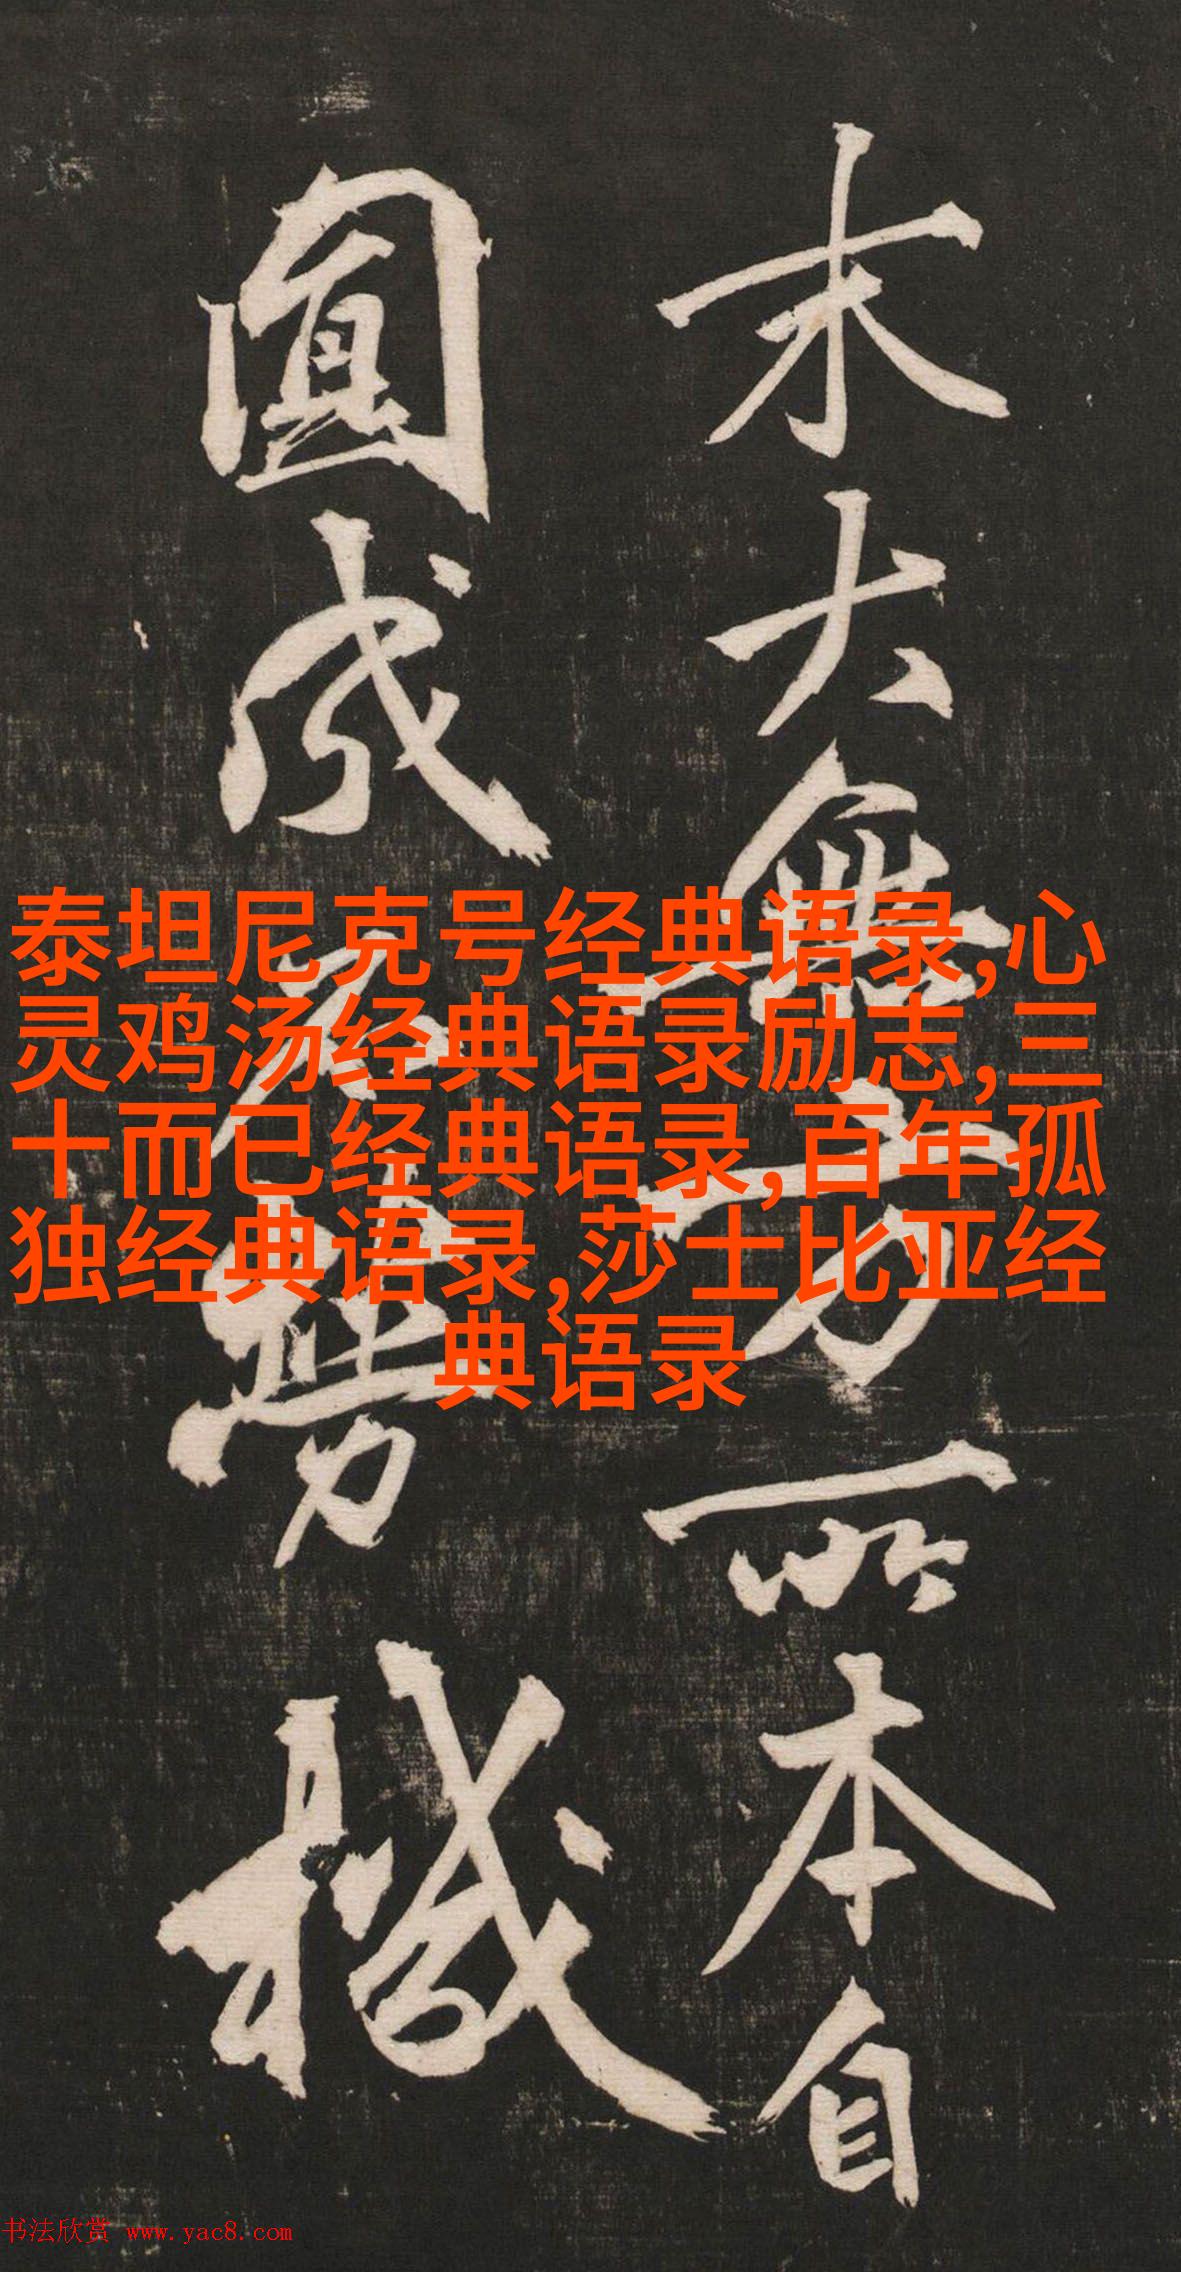 末大無方所本自
圓成不勞機
泰坦尼克号经典语录,心
灵鸡汤经典语录励志,三
十而已经典语录,百年孤
独经典语录,莎士比亚经
典语录
书法欣赏 www.yac8.com